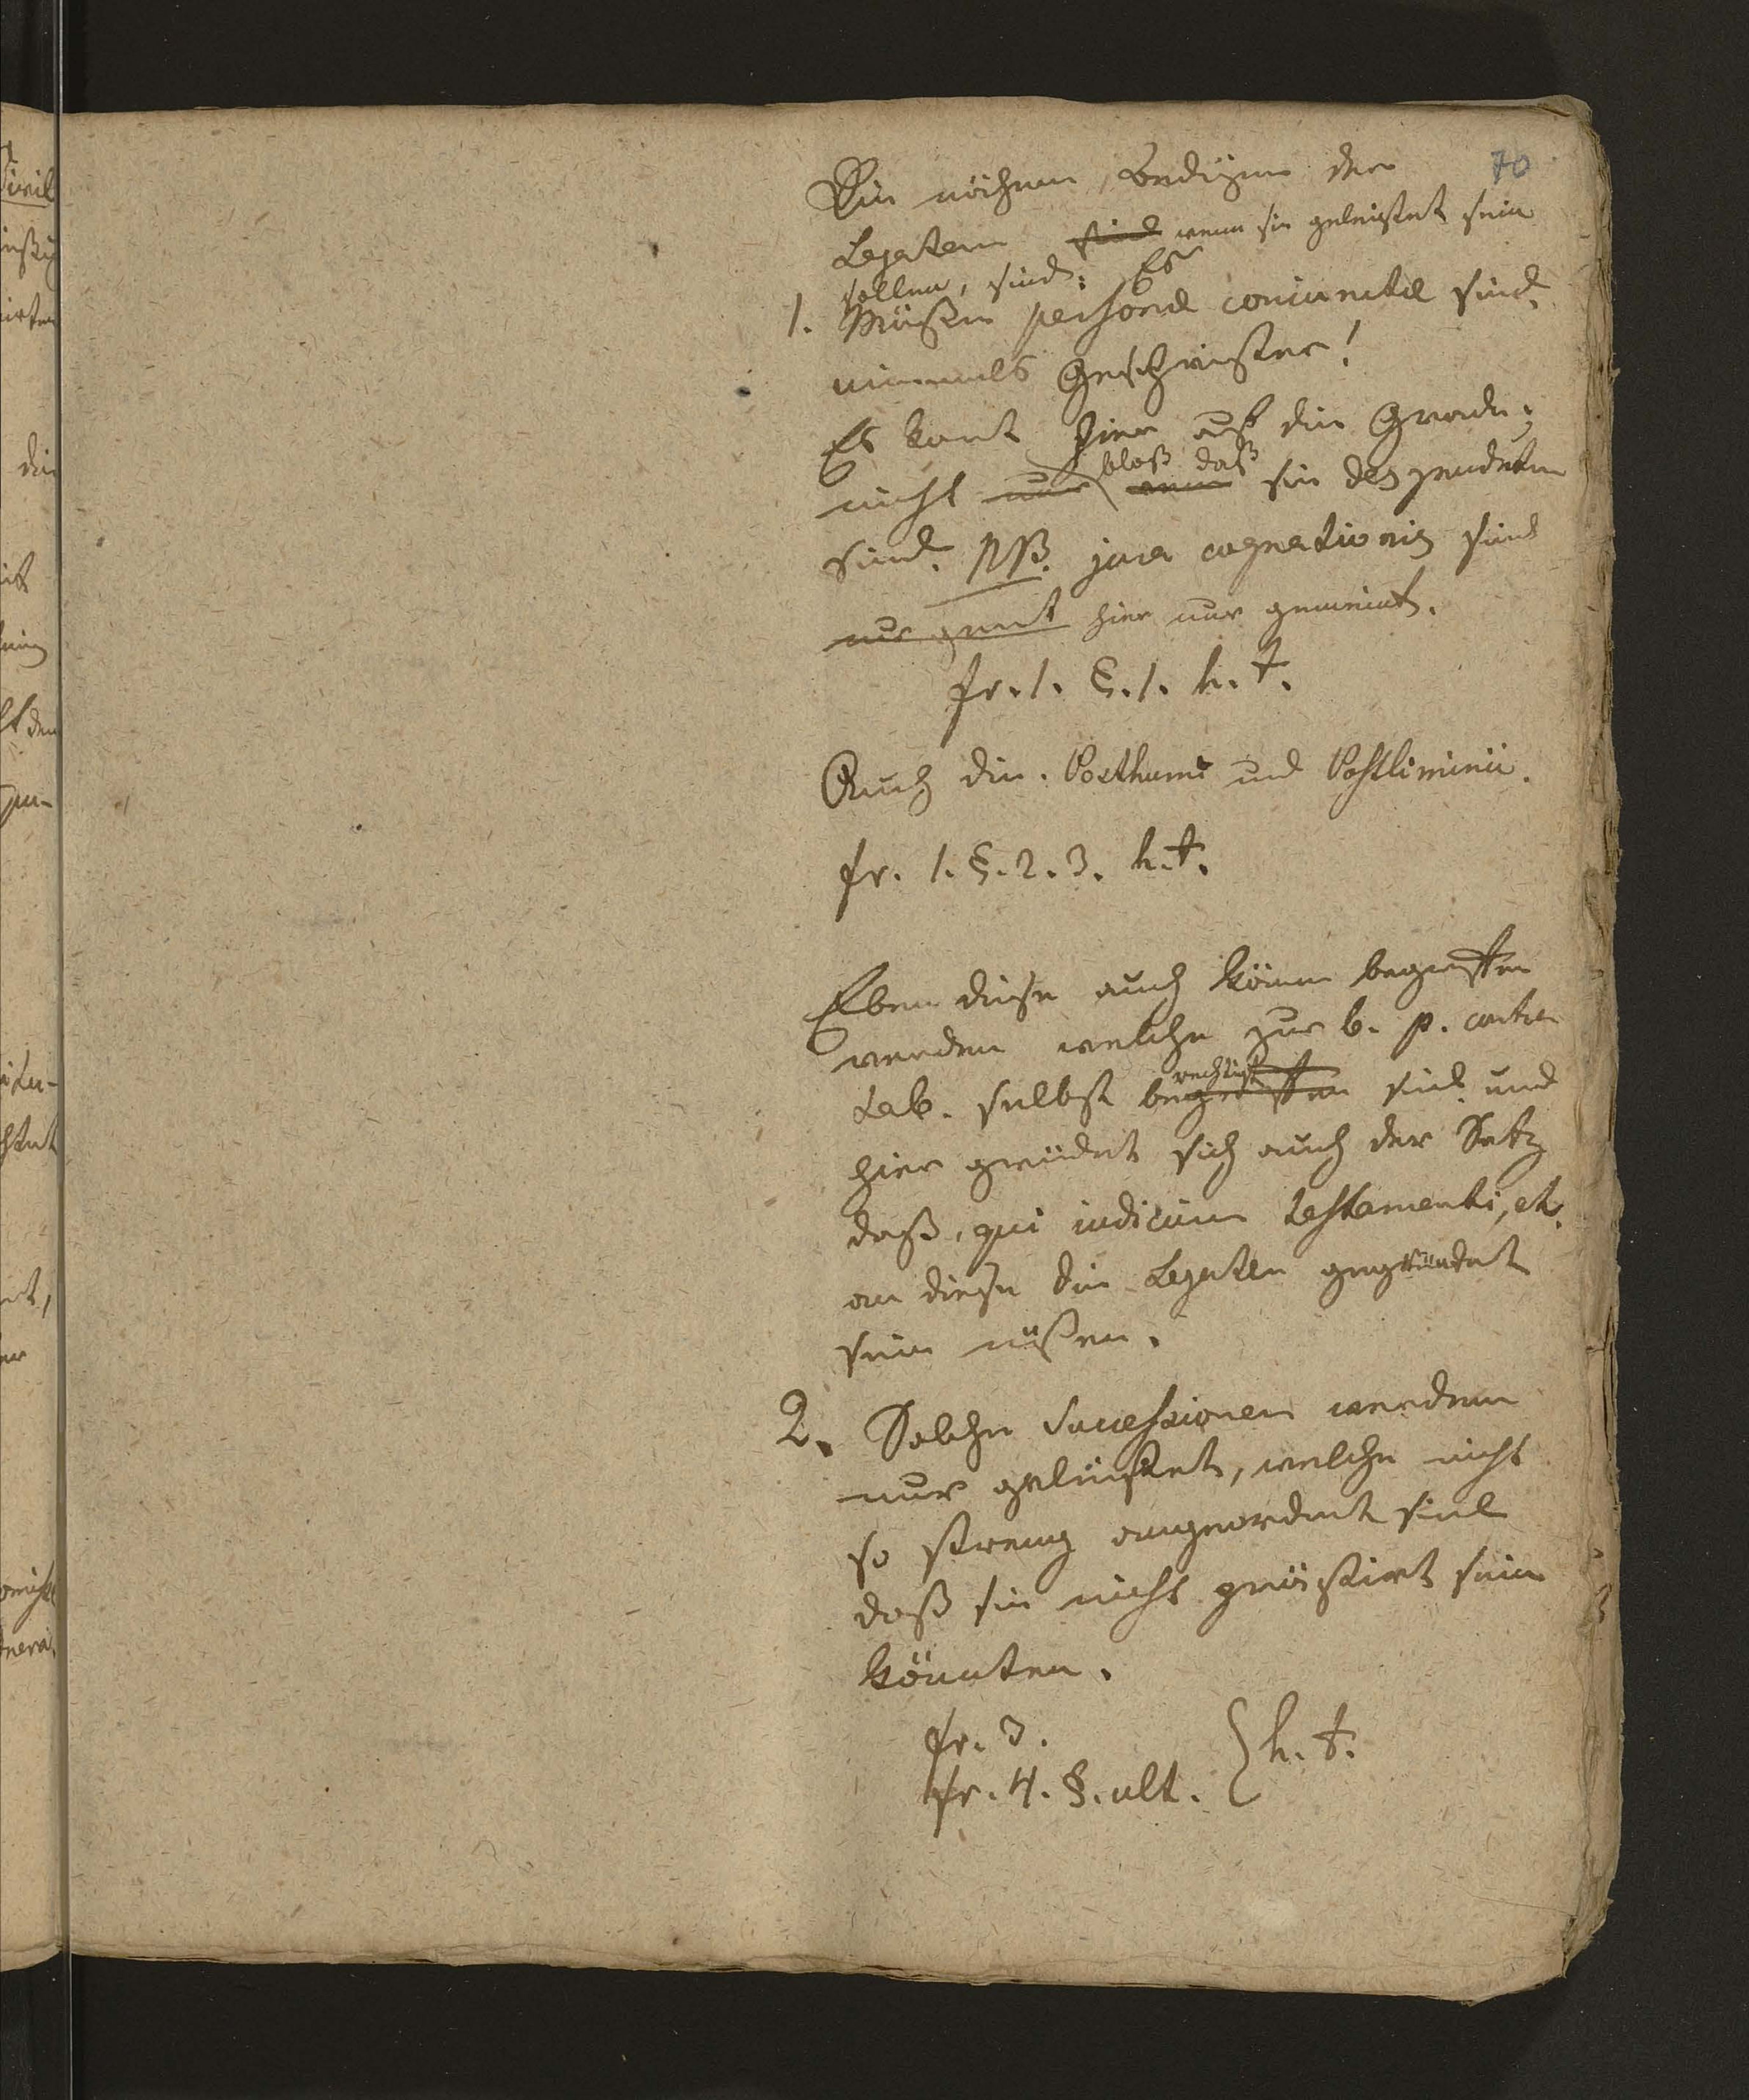 70
Die nähern Bedigung der
Legaten sind wenn sie geleistet sein
sollen, sind: Es
1. Müßen personae coniunctae sind
niemals Geschwister!
Es komt hier auf die Grade;
nicht nur bloß daß wenn sie deszendenten
sind. NB. jura cognationis sind
nur gemt hier nur gemeint.
fr. 1. §. 1. h. t.
Auch die Posthumi und Postliminii.
fr. 1. §. 2. 3. h. t.
Eben diese auch könen begriffen
werden welche zur b. p. contra
tab. selbst begriffen rechtigt sind und
hier gründet sich auch der Satz
daß, qui iudicium testamenti, et.
an diese die Legaten gegründet
sein müßen.
2. Solche Successionen werden
nur geleistet, welche nicht
so streng angeordnet sind
daß sie nicht geleistet sein
könnten.
fr. 3.
fr. 4. §. ult. } h. t.